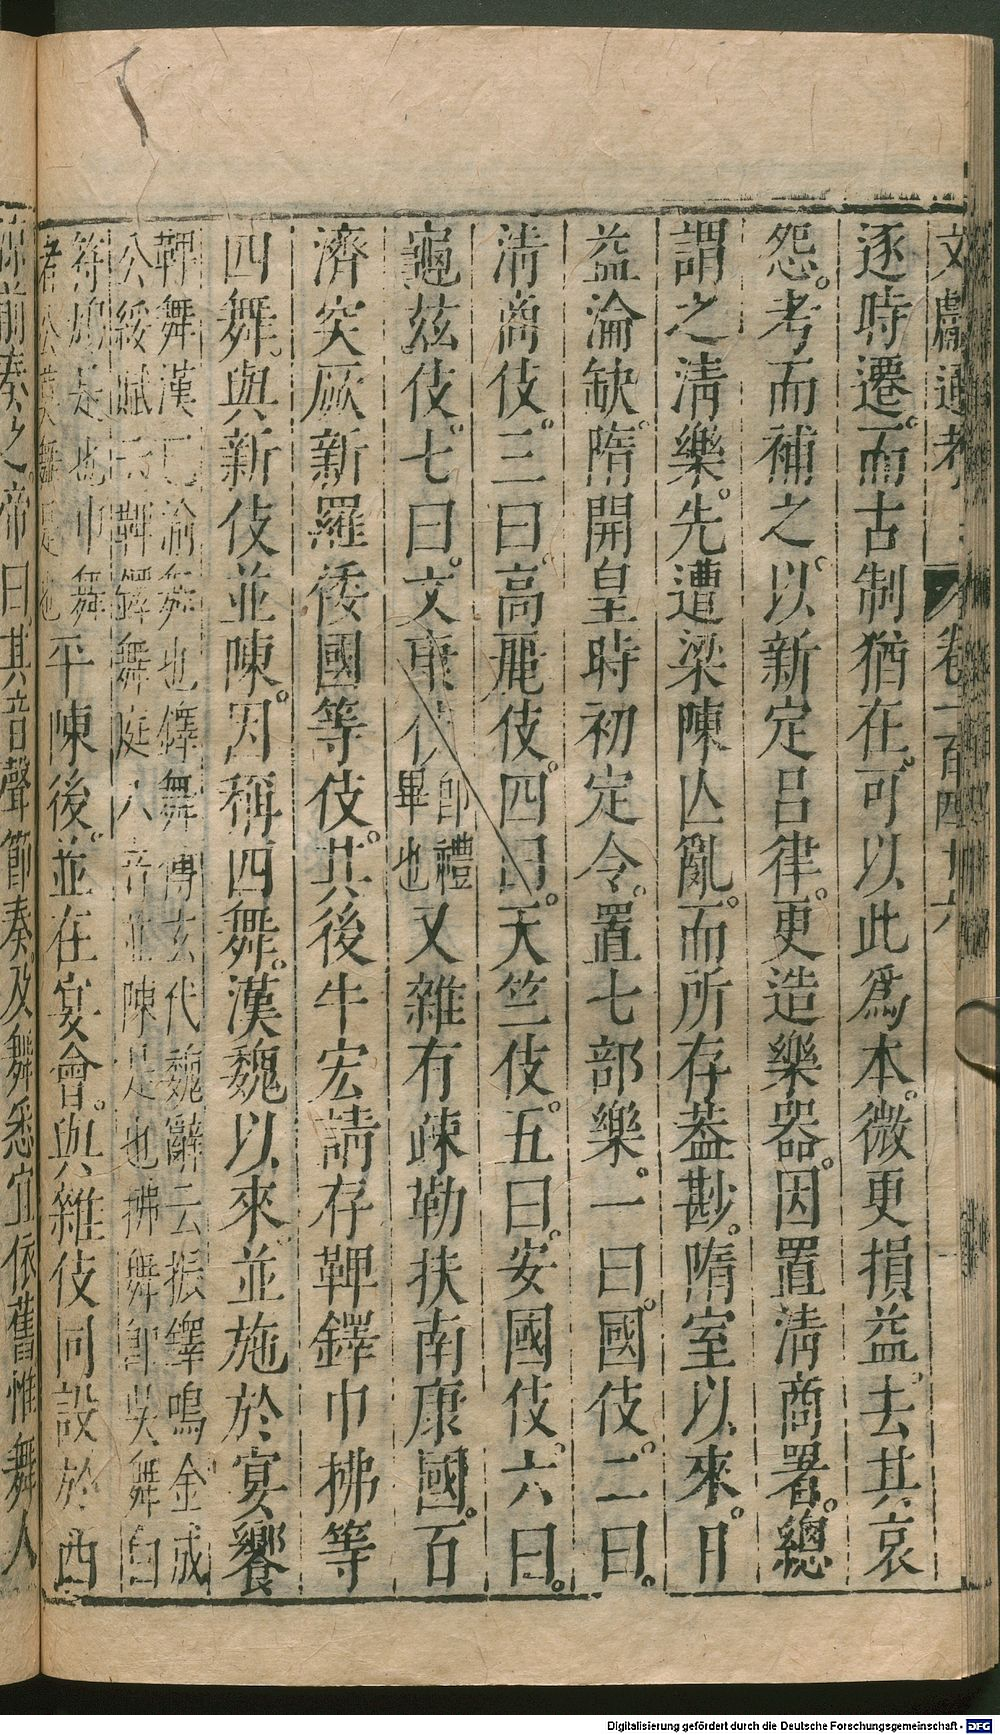 文獻通考 卷一百四十六
逐時遷。而古制猶在。可以此爲本。微更損益。去其哀
怨。考而補之。以新定呂律。更造樂器。因置清商署。總
謂之清樂。先遭梁陳亾亂。而所存葢尠。隋室以來。日
益淪缺。隋開皇時初定令。置七部樂。一曰。國伎。二曰。
清商伎。三曰。高麗伎。四曰。天竺伎。五曰。安國伎。六曰。
龜茲伎。七曰。文康伎卽禮畢也又雜有疎勒扶南康國。百
濟突厥新羅倭國等伎。其後牛宏請存鞞鐸巾拂等
四舞。與新伎並陳。因稱四舞。漢魏以來。並施於宴饗
鞞舞漢巴渝舞也鐸舞傅玄代魏辭云振鐸鳴金成
公綏賦云鞞鐸舞庭八音並陳是也拂舞卽吳舞白
符鳩是也巾舞
者公莫舞是也平陳後。並在宴會。與雜伎同設於西
涼前奏之。帝曰其音聲節奏及舞悉宜依舊惟舞人
Digitalisierung gefördert durch die Deutsche Forschungsgemeinschaft - DFG